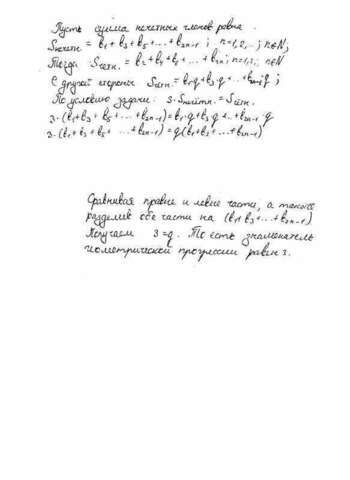 Пусть сумма нечетных членов равна
Sнечетн = b1 + b3 + b5 + ... + b2n-1 ; n=1,2,...; n∈N;
Тогда Sчетн. = b2 + b4 + b6 + ... + b2n; n=1,2.. n∈N
С другой стороны Sчетн. = b1q + b3·q + ... + b2n-1·q ;
По условию задачи: 3·Sнечётн. = Sчетн.
3·(b1+b3+b5+ ... +b2n-1) = b1·q+b3·q+...+b2n-1·q
3·(b1+b3+b5+ ... +b2n-1) = q(b1+b3+...+b2n-1)
Сравнивая правые и левые части, а также
разделив обе части на (b1+b3+...+b2n-1)
Получаем 3=q. То есть знаменатель
геометрической прогрессии равен 3.